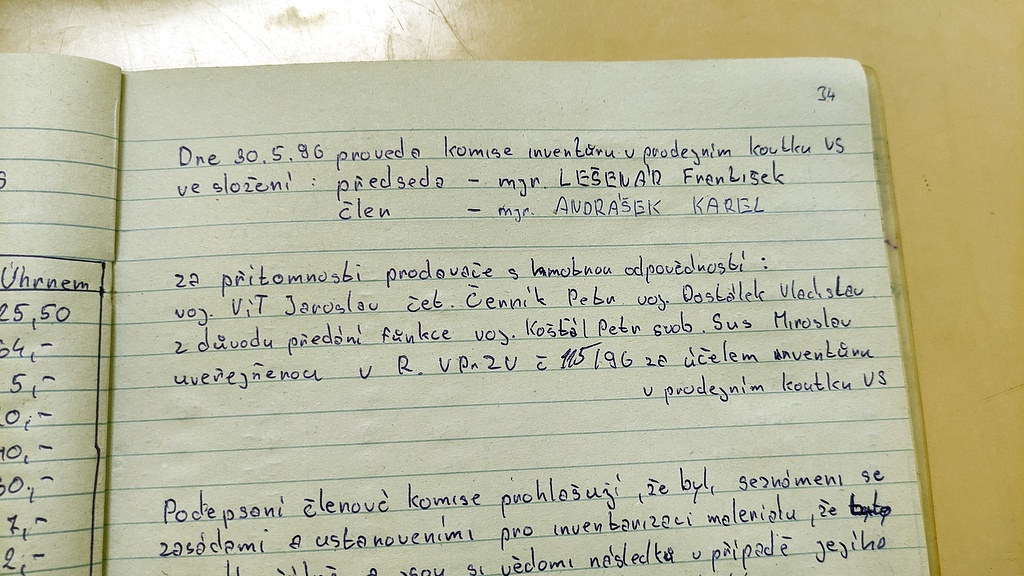 34
Dne 30.5.96 provedla komise inventůru v prodejním koutku VS
ve složení : předseda - mgr. LEŠENAR František
člen - mgr. ANDRAŠEK KAREL
za přítomnosti prodavače s hmotnou odpovědností :
voj. VíT Jaroslav čet. Černík Petr voj. Dostálek Vladislav
z důvodu předání funkce voj. Koštál Petr svob. Sus Miroslav
uveřejněnou v R. VPn ZU č 115/96 za účelem inventůru
v prodejním koutku VS
Podepsaní členové komise prohlašují, že byli seznámeni se
zásadami a ustanoveními pro inventarizaci materiálu, že
a jsou si vědomi následků v případě jejího
Úhrnem
25,50
64,-
5,-
0,-
10,-
30,-
7,-
2,-